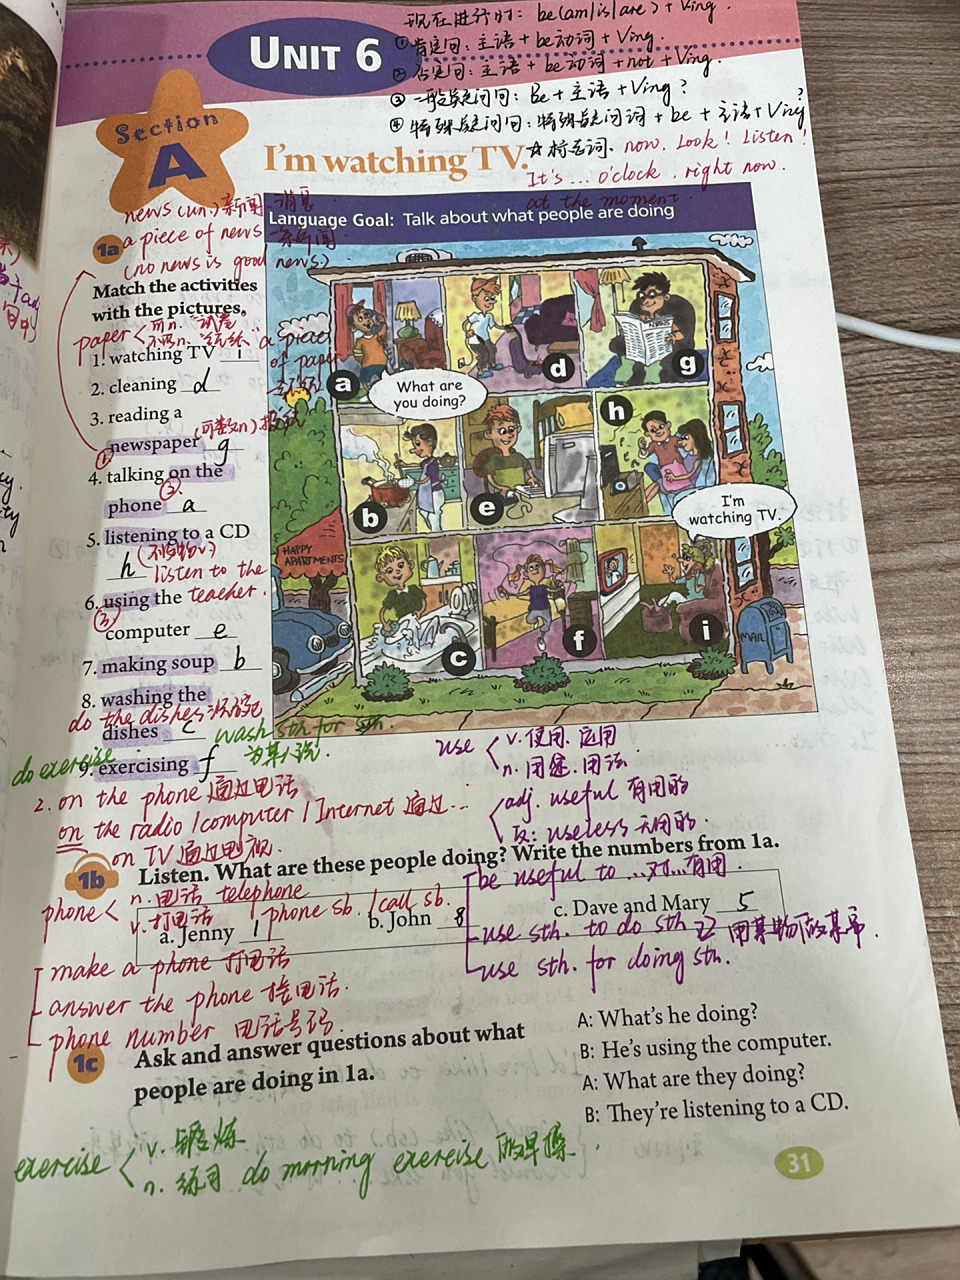 现在进行时: be(am/is/are) + Ving.
UNIT 6
①肯定句: 主语 + be动词 + Ving.
②否定句: 主语 + be动词 + not + Ving.
③一般疑问句: Be + 主语 + Ving?
④特殊疑问句: 特殊疑问词 + be + 主语 + Ving?
Section
A
I'm watching TV.
☆标志词. now. Look! Listen!
It's ... o'clock, right now.
at the moment.
Language Goal: Talk about what people are doing
news (un.) 新闻, 消息
a piece of news 一条新闻
(no news is good news.)
1a
Match the activities
with the pictures.
paper < 可n. 试卷
不可n. 纸
a piece
of paper
一张纸
1. watching TV i
2. cleaning d
3. reading a
newspaper g
(可数n) 报纸
4. talking on the
phone a
5. listening to a CD
h
(不及物v)
listen to the
teacher.
6. using the
computer e
7. making soup b
8. washing the
dishes c
do the dishes
wash sth for sb.
为某人洗
do exercise
9. exercising f
What are
you doing?
I'm
watching TV.
HAPPY
APARTMENTS
NEWS
MAIL
a
d
g
h
b
e
c
f
i
use < v. 使用. 运用
n. 用途. 用法
adj. useful 有用的
反: useless 无用的.
2. on the phone 通过电话
on the radio / computer / Internet 通过...
on TV 通过电视.
1b
Listen. What are these people doing? Write the numbers from 1a.
be useful to ... 对...有用.
phone < n. 电话 telephone
v. 打电话 phone sb. / call sb.
a. Jenny 1
b. John 8
c. Dave and Mary 5
use sth. to do sth 用某物做某事.
use sth. for doing sth.
make a phone 打电话
answer the phone 接电话.
phone number 电话号码.
1c
Ask and answer questions about what
people are doing in 1a.
A: What's he doing?
B: He's using the computer.
A: What are they doing?
B: They're listening to a CD.
exercise < v. 锻炼
n. 练习 do morning exercise 做早操.
31